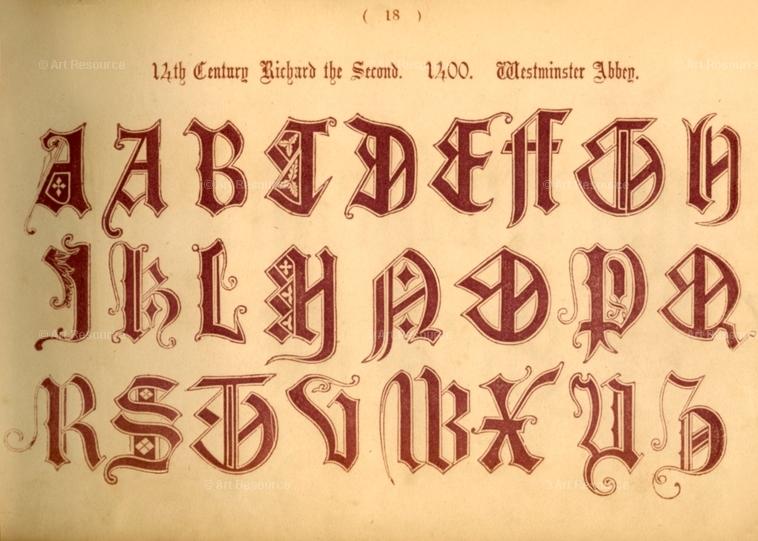 ( 18 )
14th Century Richard the Second. 1400. Westminster Abbey.
A A B C D E F G H
I K L M N O P Q
R S T V W X Y Z
© Art Resource